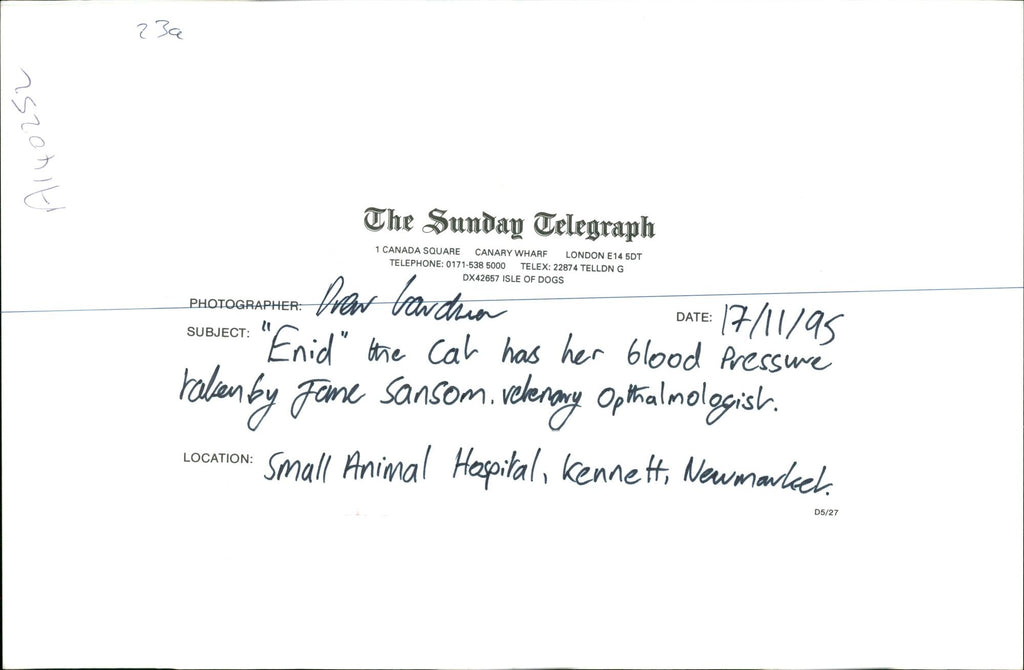 23a
A1140252
The Sunday Telegraph
1 CANADA SQUARE CANARY WHARF LONDON E14 5DT
TELEPHONE: 0171-538 5000 TELEX: 22874 TELLDN G
DX42657 ISLE OF DOGS
PHOTOGRAPHER: Drew Gardner DATE: 17/11/95
SUBJECT: "Enid" the Cat has her blood Pressure
taken by Jane Sansom. vetenary Opthalmologist.
LOCATION: Small Animal Hospital, Kennett, Newmarket.
D5/27